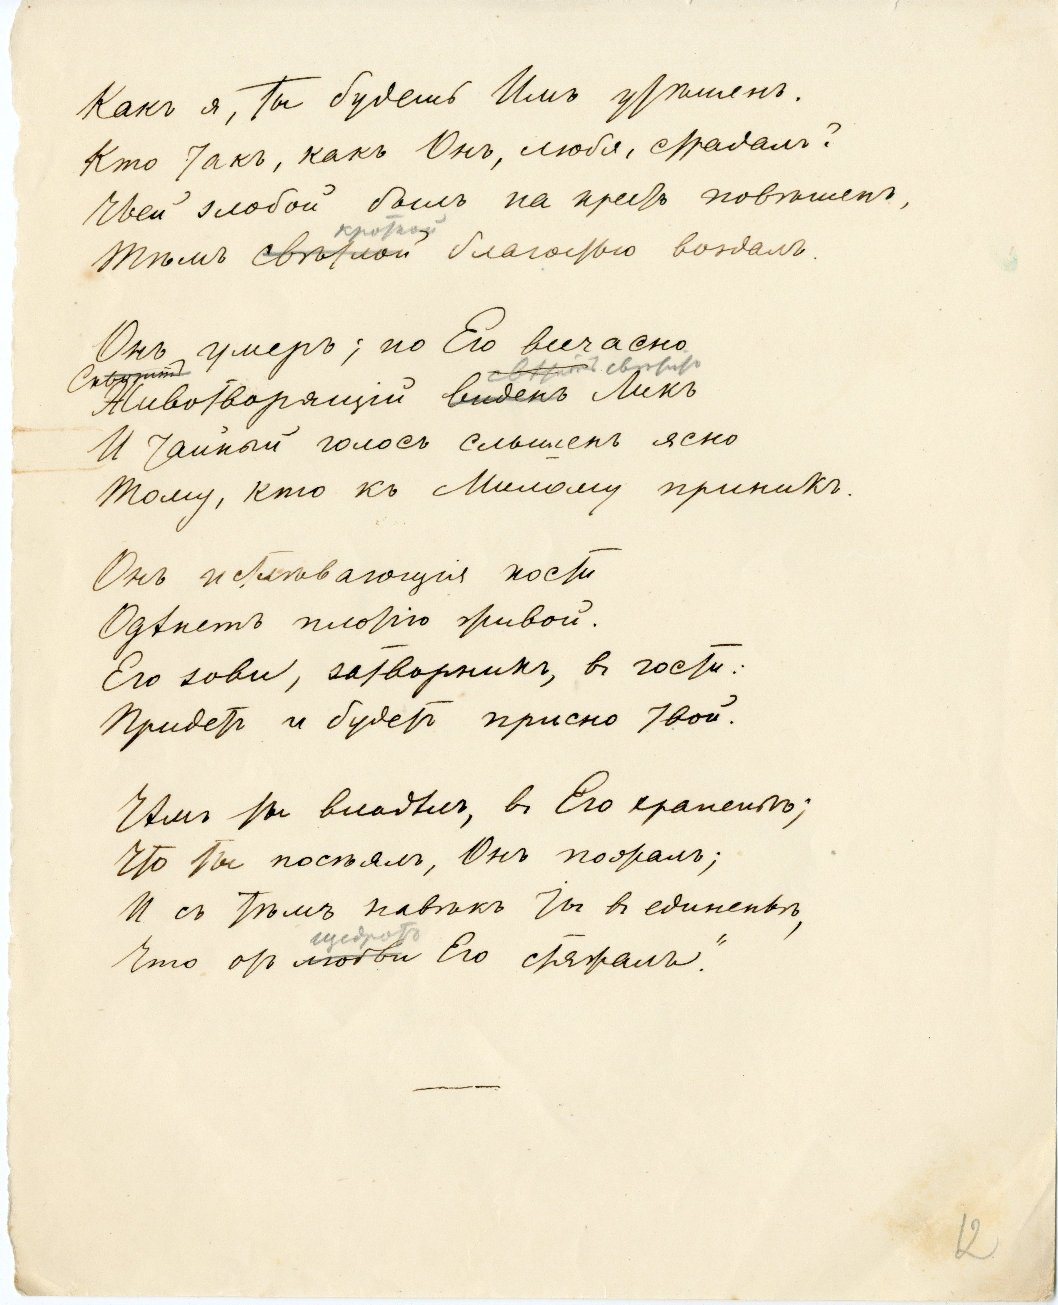 Какъ я, ты будешь Имъ утѣшенъ.
Кто такъ, какъ Онъ, любя, страдалъ?
Чьей злобой былъ на крестъ повѣшенъ,
кроткой
Тѣмъ свѣтлой благостью воздалъ.
Онъ умеръ; но Его всечасно
свѣтитъ
Животворящій виденъ Ликъ
И тайный голосъ слышенъ ясно
Тому, кто къ Милому приникъ.
Онъ истлѣвающія кости
Одѣнетъ плотію живой.
Его зови, затворникъ, въ гости:
Придетъ и будетъ присно твой.
Чѣмъ ты владѣлъ, въ Его храненьѣ;
Что ты посѣялъ, Онъ пожалъ;
И съ тѣмъ навѣкъ ты въ единеньѣ,
щедротъ
Что отъ любви Его стяжалъ."
12